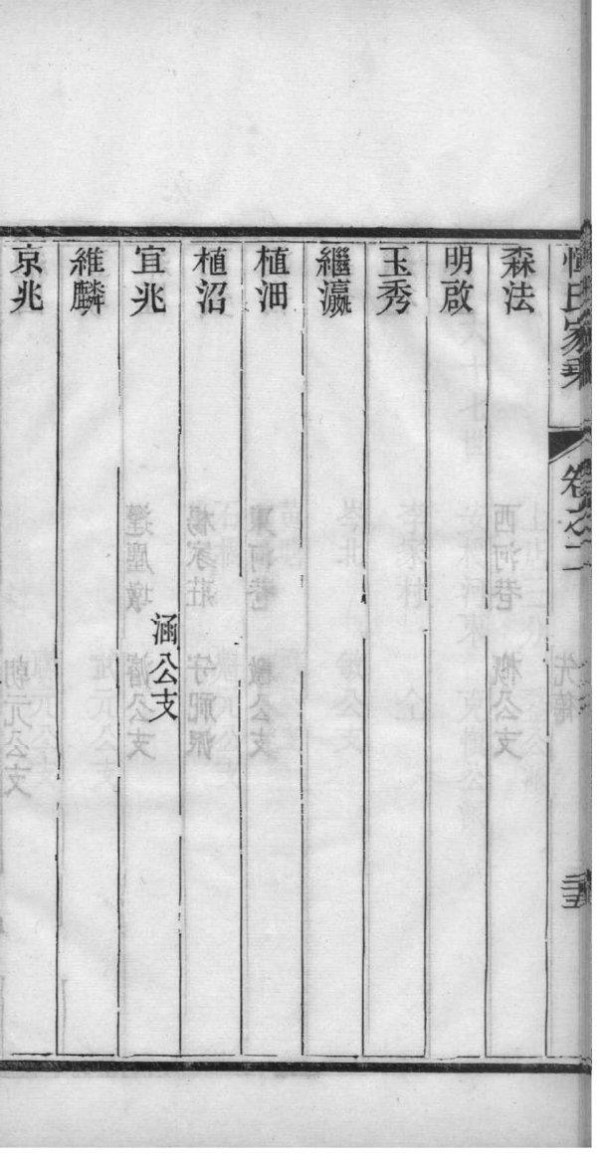 惲氏家乘 卷之二
森法
明啟
玉秀
繼瀛
植沺
植沼
宜兆 涵公支
維麟
京兆